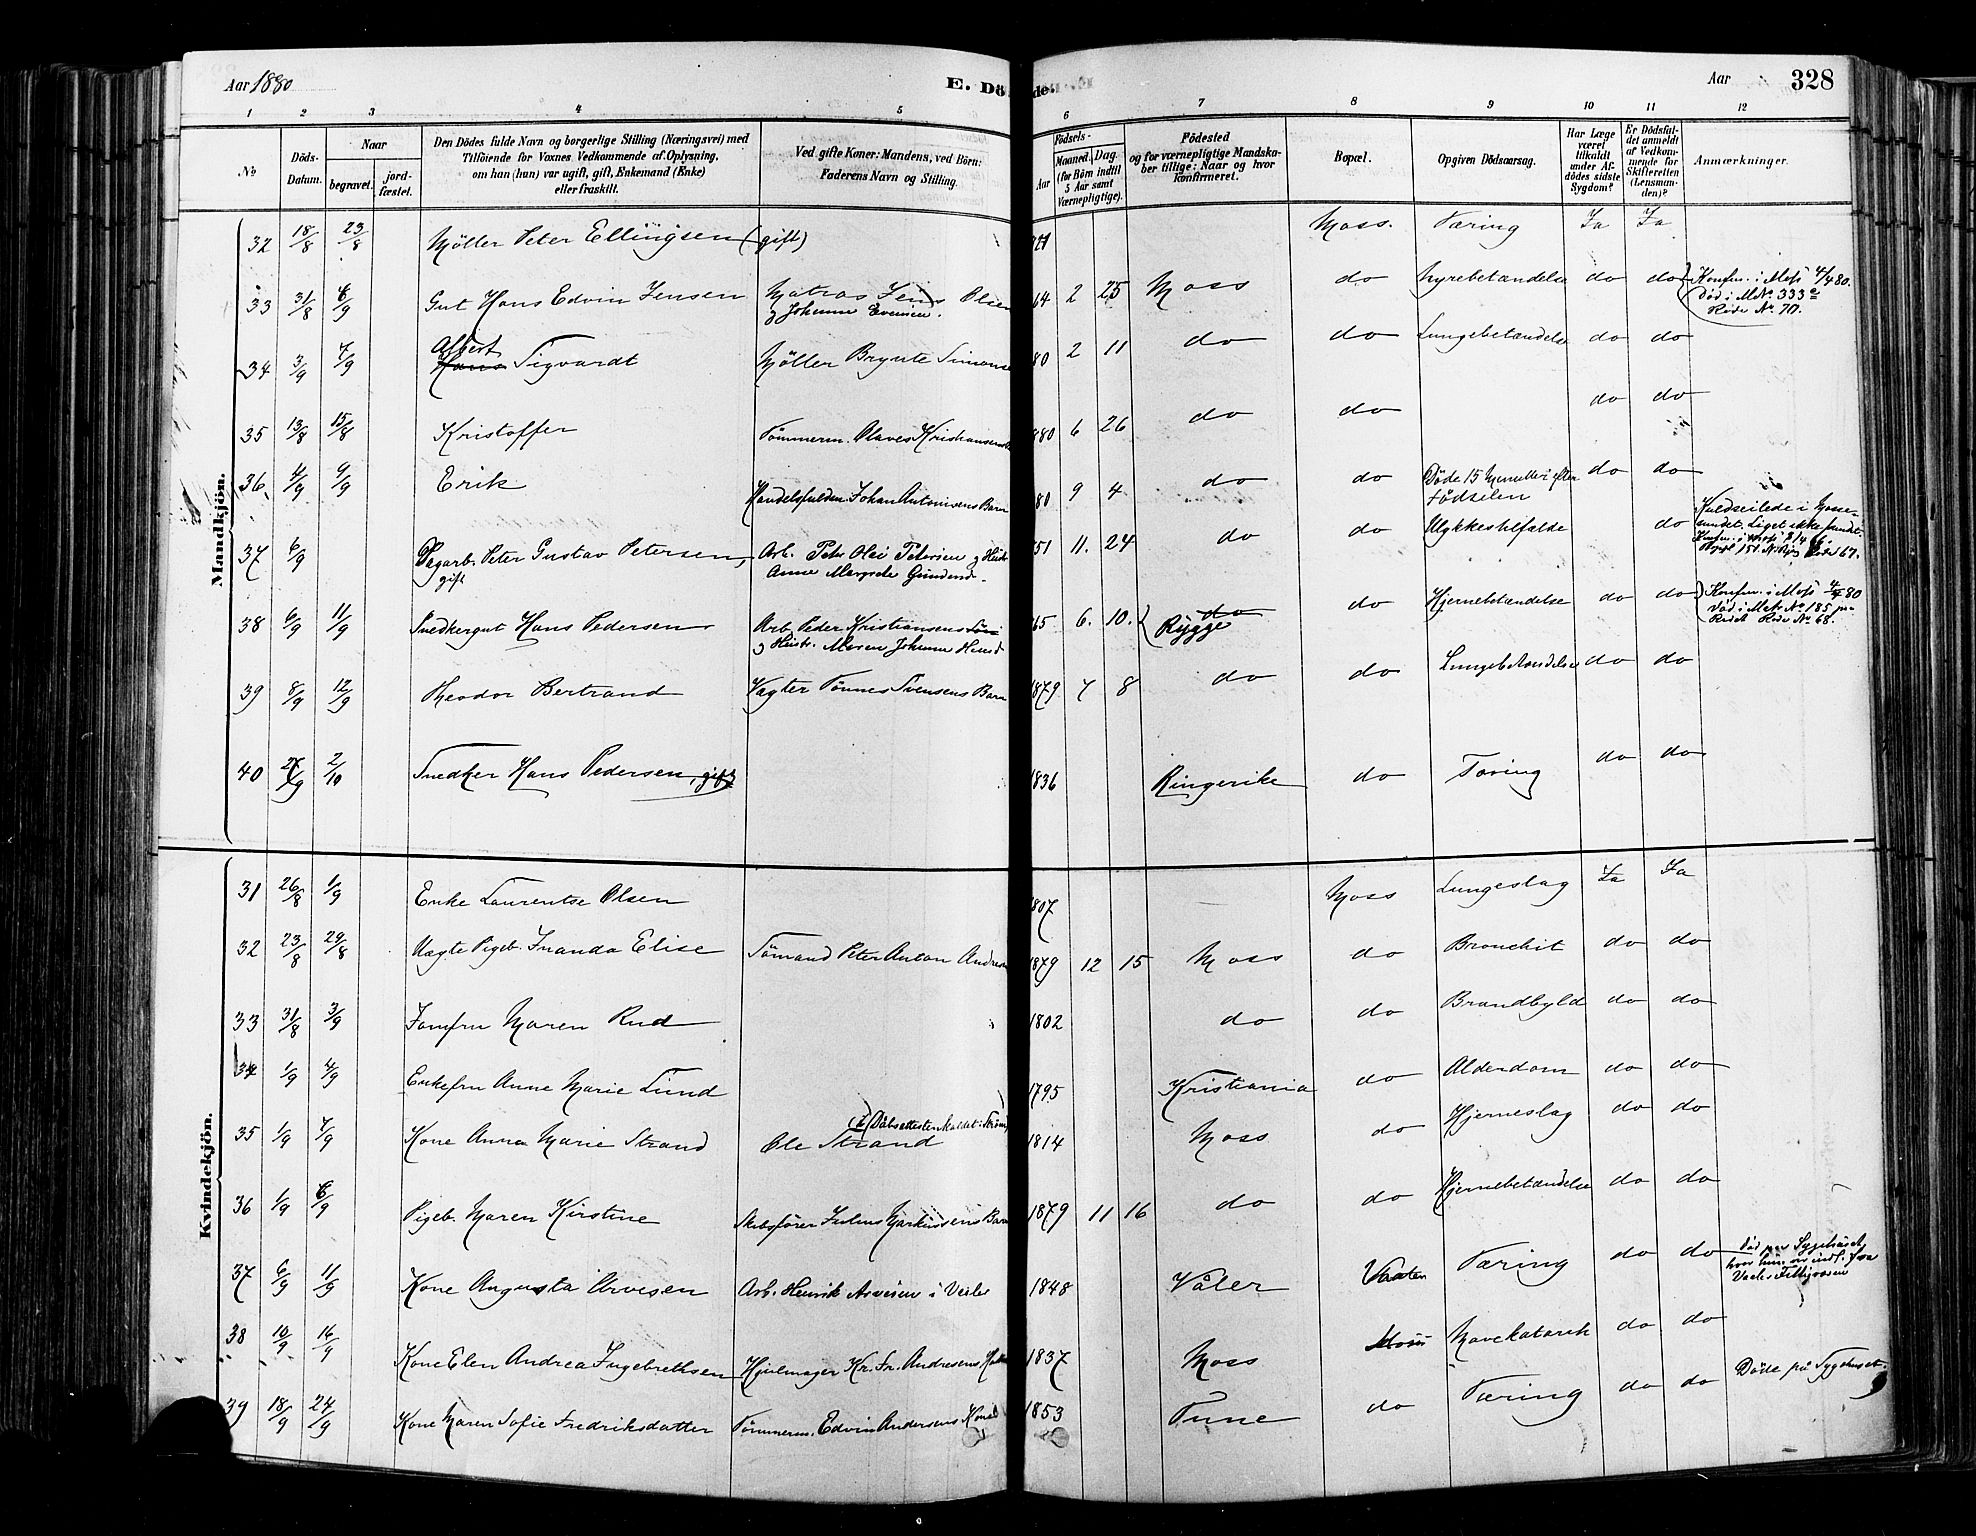 Aar 1880
E. Dö
de.
Aar
328
1 2 3 4 5 6 7 8 9 10 11 12
No.
Döds-Datum.
Naar
begravet.
jord-fæstet.
Den Dödes fulde Navn og borgerlige Stilling (Næringsvei) med
Tilförende for Voxnes Vedkommende af Oplysning,
om han (hun) var ugift, gift, Enkemand (Enke)
eller fraskilt.
Ved gifte Koner: Mandens, ved Börn:
Faderens Navn og Stilling.
Födsels-
Aar
Maaned. Dag.
(for Börn indtil
5 Aar samt
Værnepligtige).
Födested
og for værnepligtige Mandska-
ber tillige: Naar og hvor
konfirmeret.
Bopæl.
Opgiven Dödsaarsag.
Har Læge
været
tilkaldt
under Af-
dödes sidste
Sygdom?
Er Dödsfal-
det anmeldt
af Vedkom-
mende for
Skifteretten
(Lensman-
den)?
Anmærkninger.
Mandkjön.
32 18/8 23/8 Möller Peter Ellingsen (gift) Moss. Tæring Ja Ja
33 31/8 6/9 Gut Hans Edvin Jensen Matros Jens Olsen
og Johanne Evensen. 64 2 25 Moss do Nyrebetændelse do do Konfm. i Moss 4/4 80.
Död i M. No. 333
Rode No. 70.
34 3/9 7/9 Albert
Hans Sigvardt Möller Brynte Simonse 80 2 11 do do Lungebetændelse do do
35 13/8 15/8 Kristoffer Tömmerm. Olaves Kristiansens 880 6 26 do do do do
36 4/9 9/9 Erik Handelsfuldm. Johan Antonisens Barn 80 9 4 do do Döde 15 Minutter efter
Födselen do do
37 6/9 Dagarb. Peter Gustav Petersen,
gift Arb. Peter Olai Petersen og Hustr
Anne Margrete Gundersd. 51 11. 24 do do Ulykkestilfælde do Kuldseilede i Mosse-
sundet. Liget ikke fundet.
38 6/9 11/9 Snedkergut Hans Pedersen Arb. Peder Kristiansens Sön
og Hustr. Maren Johanne Hansd 65 6. 10. do
Rygge do Hjernebetændelse do do Konfm. i Moss 4/4 80
Död i M. No. 185
Rode No. 68.
39 8/9 12/9 Theodor Bertrand Vagter Tönnes Svensens Barn 1879 7 8 do do Lungebetændelse do do
40 2/10 Snedker Hans Pedersen, gift 1836 Ringerike do Tæring do do
Kvindekjön.
31 26/8 1/9 Enke Laurentse Olsen 1807 Moss Lungeslag Ja Ja
32 23/8 29/8 Uægte Pigeb. Inanda Elise Sömand Peter Anton Andres 1879 12 15 Moss do Bronchit do do
33 31/8 3/9 Jomfru Maren Rud 1802 do do Brandbyld do do
34 1/9 4/9 Enkefru Anne Marie Lund 1795 Kristiania do Alderdom do do
35 1/9 7/9 Kone Anna Marie Strand (i Dåbsattesten kaldet: Ström)
Ole Strand 1814 Moss do Hjerneslag do do
36 1/9 6/9 Pigeb. Maren Kirstine Skibsförer Julius Markussens Barn 1879 11 16 do do Hjernebetændelse do do
37 6/9 11/9 Kone Augusta Arvesen Arb. Henrik Arvesen i Veiler 1848 Våler Tæring do do Död paa Sygehuset
hvor hun er indl. fra
Vaaler Fattigvæsen
38 10/9 16/9 Kone Elen Andrea Ingebrethsen Hjulmager Kr. Fr. Andresens 1837 Moss Moss Mavekatarrh do do
39 18/9 24/9 Kone Maren Sofie Fredriksdatter Tömmerm. Edvin Andersens Kone 1853 Tune do Tæring do do Döde på Sygehuset.